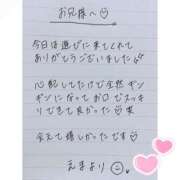 お兄様へ♡
今日は遊びに来てくれて
ありがとうございました
心配してたけど全然ギン
ギンになってお口でスッキ
リできて良かった♡笑
会えて嬉しかったです♡
えまより☺